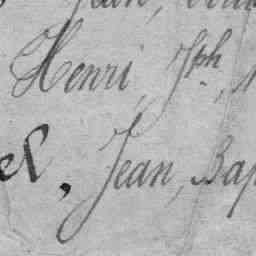 Jean,
Henri, Jph,
&, Jean, Bap